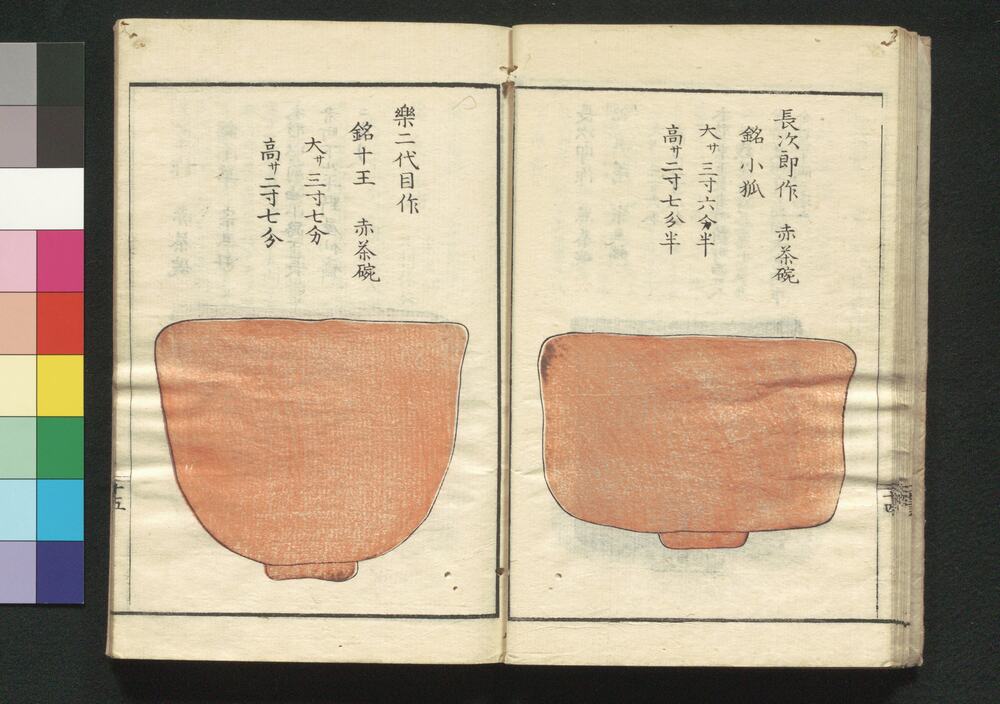 長次郎作　赤茶碗
銘小狐
大サ三寸六分半
高サ二寸七分半
樂二代目作
銘十王　赤茶碗
大サ三寸七分
高サ二寸七分
十五